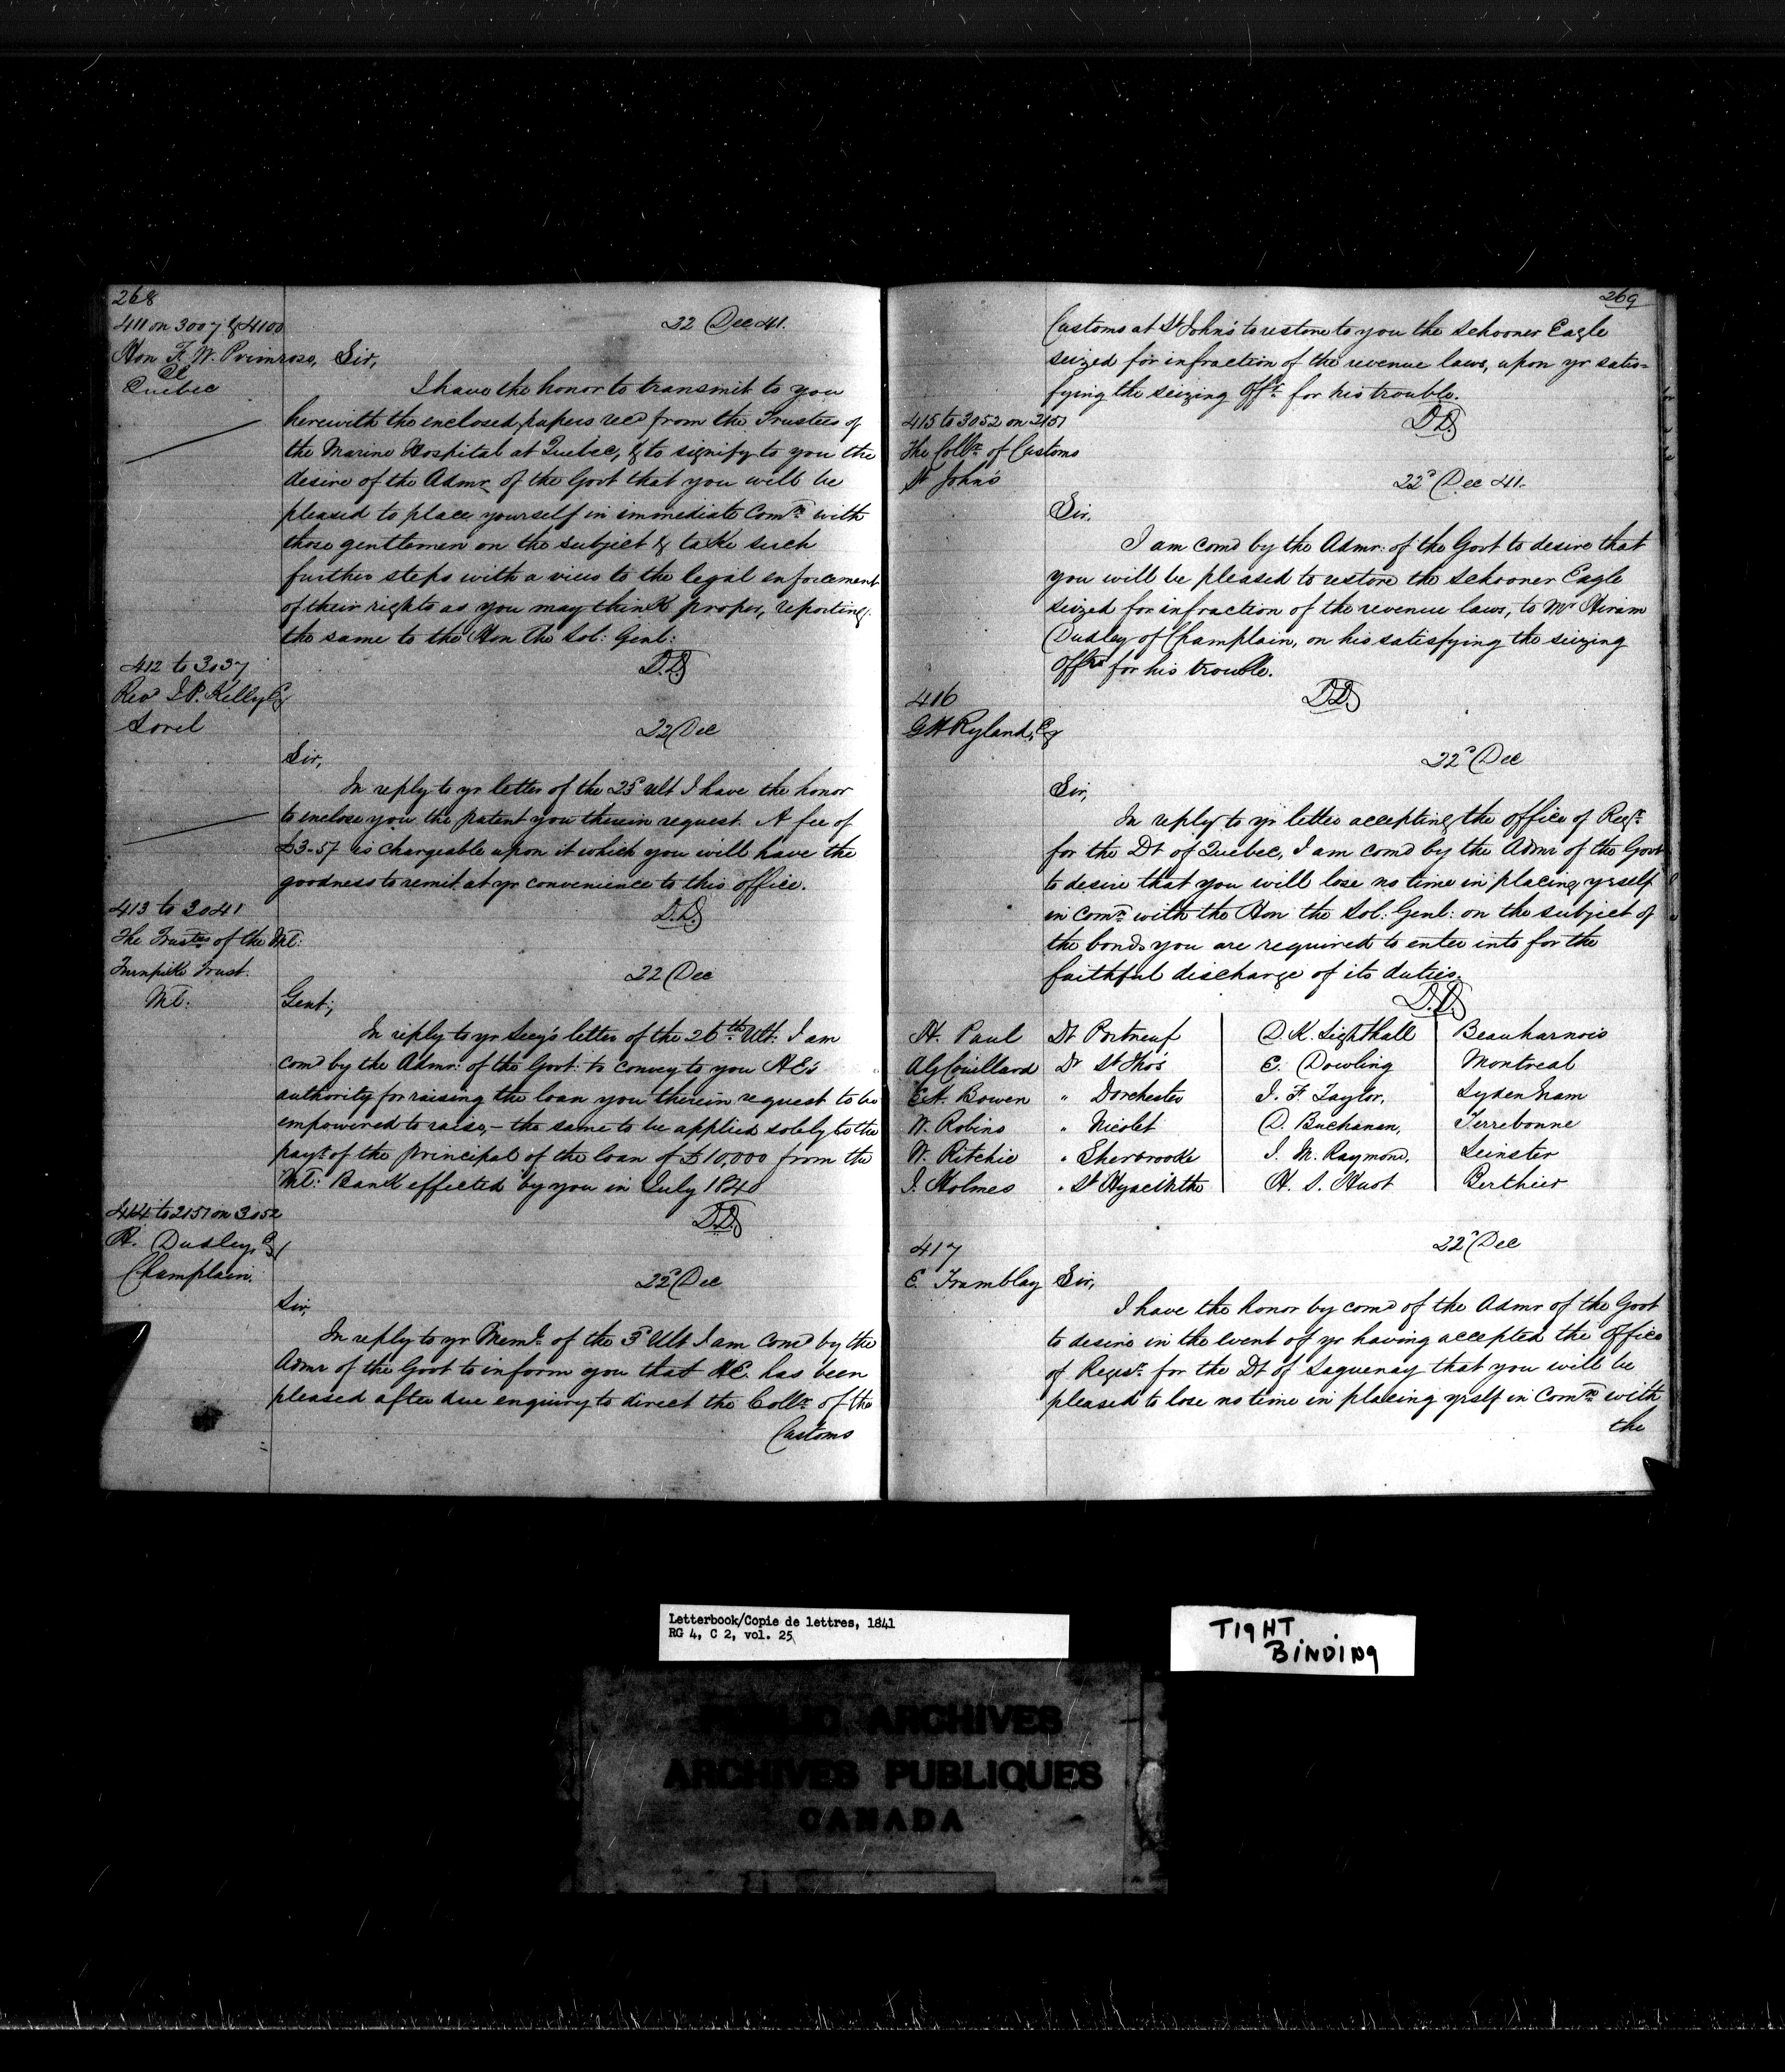 268
411 on 3007 & 4100
Hon F. W. Primrose,
QC
Quebec
22 Dec 41.
Sir,
I have the honor to transmit to you
herewith the enclosed papers recd from the Trustees of
the Marine Hospital at Quebec, & to signify to you the
desire of the Admr of the Govt that you will be
pleased to place yourself in immediate Comn with
those gentlemen on the subject & take such
further steps with a view to the legal enforcement
of their rights as you may think proper, reporting
the same to the Hon The Sol: Genl:
D.D
412 to 3037
Revd Kelly
Sorel
22 Dec
Sir,
In reply to yr letter of the 25 ult I have the honor
to enclose you the patent you therein request. A fee of
is chargeable upon it which you will have the
goodness to remit at yr convenience to this office.
D.D
413 to 3041
The Trustes of the Ml:
Turnpike Trust.
Ml:
22 Dec
Gent;
In reply to yr Secy's letter of the 26th Ult: I am
comd by the Admr: of the Govt: to convey to you HE's
authority for raising the loan you therein request to be
empowered to raise, – the same to be applied solely to the
payt of the principal of the loan of £10,000 from the
Ml: Bank effected by you in July 1840
D.D
414 to 2151 on 3052
H. Dudley, Esq
Champlain.
22d Dec
Sir,
In reply to yr Meml of the 3d Ult I am Comd by the
Admr of the Govt to inform you that H.E. has been
pleased after due enquiry to direct the Collr of the
Customs
269
Customs at St John's to restore to you the schooner Eagle
seized for infraction of the revenue laws, upon yr satis=
fying the seizing Offr for his trouble.
D.D
415 to 3052 on 2151
The Collr of Customs
St John's
22d Dec 41.
Sir,
I am comd by the Admr: of the Govt to desire that
you will be pleased to restore the schooner Eagle
seized for infraction of the revenue laws, to Mr Hiram
Dudley of Champlain, on his satisfying the seizing
Offr for his trouble.
D.D
416
G H Ryland, Esq
22d Dec
Sir,
In reply to yr letter accepting the office of Regr
for the Dt of Quebec, I am comd by the Admr of the Govt
to desire that you will lose no time in placing yrself
in Comn with the Hon the Sol: Genl: on the subject of
the bonds you are required to enter into for the
faithful discharge of its duties.
D.D
H. Paul Dt Portneuf D. K. Lighthall Beauharnois
Couillard Dt St Tho's E. Dowling Montreal
Bowen " Dorchester J. F. Taylor, Sydenham
W. Robins " Nicolet D. Buchanan, Terrebonne
W. Ritchie " Sherbrooke J. M. Raymond, Leinster
J. Holmes " St Hyacinthe H. S. Huot Berthier
417
E. Tremblay
22d Dec
Sir,
I have the honor by comd of the Admr of the Govt
to desire in the event of yr having accepted the office
of Regisr for the Dt of Saguenay that you will be
pleased to lose no time in placing yrself in Comn with
the
Letterbook/Copie de lettres, 1841
RG 4, C 2, vol. 25
TIGHT
BINDING
PUBLIC ARCHIVES
ARCHIVES PUBLIQUES
CANADA